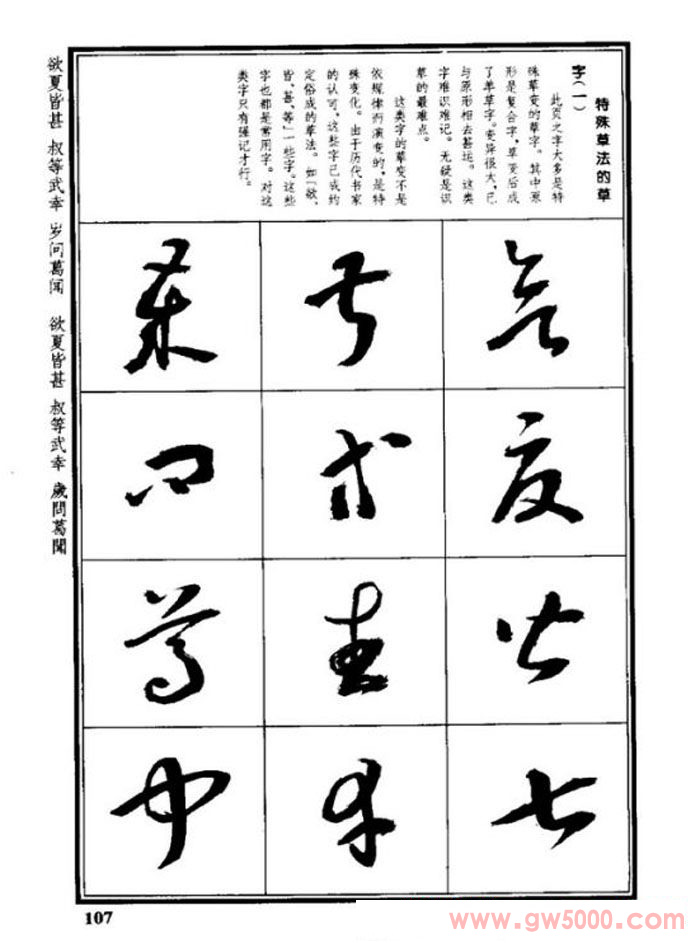 特殊草法的草
字(一)
此页之字大多是特
殊草变的草字。其中原
形是复合字,草变后成
了单草字。变异很大,已
与原形相去甚远。这类
字难识难记。无疑是识
草的最难点。
这类字的草变不是
依规律而演变的,是特
殊变化。由于历代书家
的认可,这些字已成约
定俗成的草法。如「欲、
皆、甚、等」一些字。这些
字也都是常用字。对这
类字只有强记才行。
欲夏皆甚
叔等武幸
岁问葛闻
欲夏皆甚 叔等武幸 岁问葛闻 欲夏皆甚 叔等武幸 歲問葛聞
107
www.gw5000.com